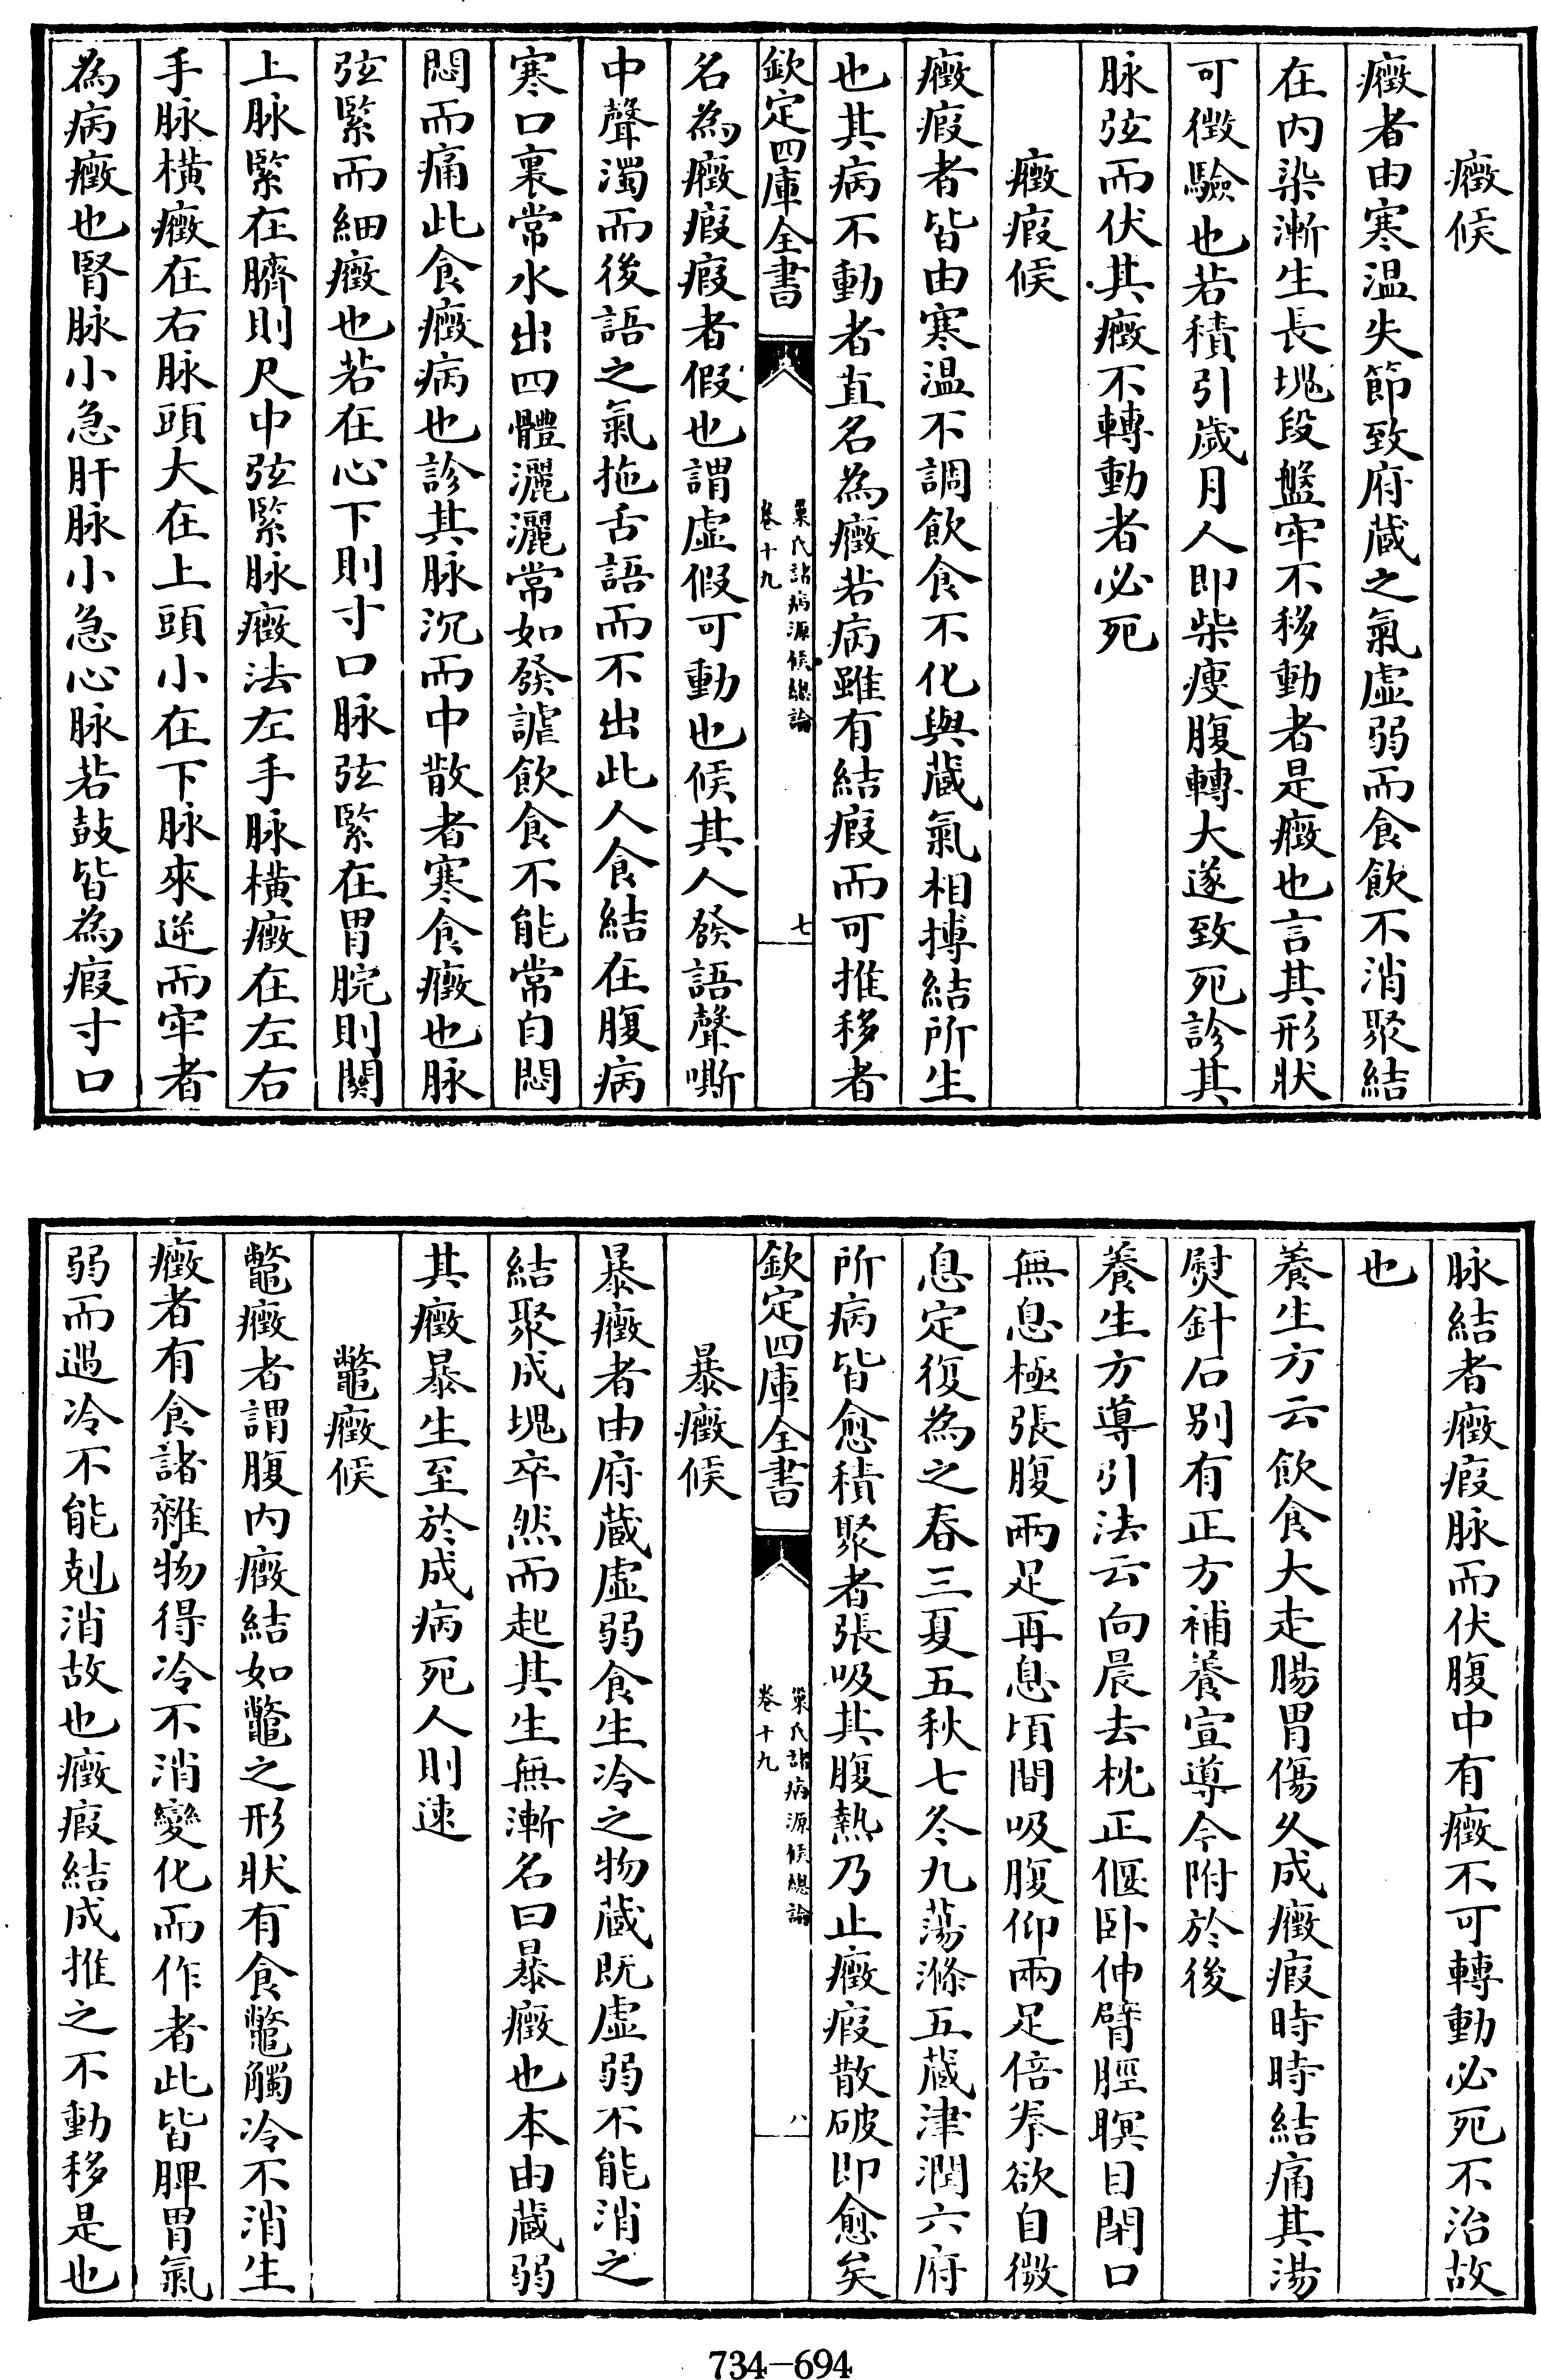 癥候
癥者由寒温失節致府藏之氣虛弱而食飲不消聚結
在内染漸生長塊段盤牢不移動者是癥也言其形狀
可徵驗也若積引歲月人即柴瘦腹轉大遂致死診其
脉弦而伏其癥不轉動者必死
癥瘕候
癥瘕者皆由寒温不調飲食不化與藏氣相搏結所生
也其病不動者直名為癥若病雖有結瘕而可推移者
欽定四庫全書
巢氏諸病源候總論
卷十九
七
名為癥瘕瘕者假也謂虛假可動也候其人發語聲嘶
中聲濁而後語之氣拖舌語而不出此人食結在腹病
寒口裏常水出四體灑灑常如發瘧飲食不能常自悶
悶而痛此食癥病也診其脉沉而中散者寒食癥也脉
弦緊而細癥也若在心下則寸口脉弦緊在胃脘則關
上脉緊在臍則尺中弦緊脉癥法左手脉横癥在左右
手脉横癥在右脉頭大在上頭小在下脉來逆而牢者
為病癥也腎脉小急肝脉小急心脉若鼓皆為瘕寸口
脉結者癥瘕脉而伏腹中有癥不可轉動必死不治故
也
養生方云飲食大走腸胃傷久成癥瘕時時結痛其湯
熨針石别有正方補養宣導今附於後
養生方導引法云向晨去枕正偃卧伸臂脛瞑目閉口
無息極張腹兩足再息頃間吸腹仰兩足倍拳欲自微
息定復為之春三夏五秋七冬九蕩滌五藏津潤六府
所病皆愈積聚者張吸其腹熱乃止癥瘕散破即愈矣
欽定四庫全書
巢氏諸病源候總論
卷十九
八
暴癥候
暴癥者由府藏虛弱食生冷之物藏既虛弱不能消之
結聚成塊卒然而起其生無漸名曰暴癥也本由藏弱
其癥暴生至於成病死人則速
鼈癥候
鼈癥者謂腹内癥結如鼈之形狀有食鼈觸冷不消生
癥者有食諸雜物得冷不消變化而作者此皆脾胃氣
弱而遇冷不能剋消故也癥瘕結成推之不動移是也
734-694